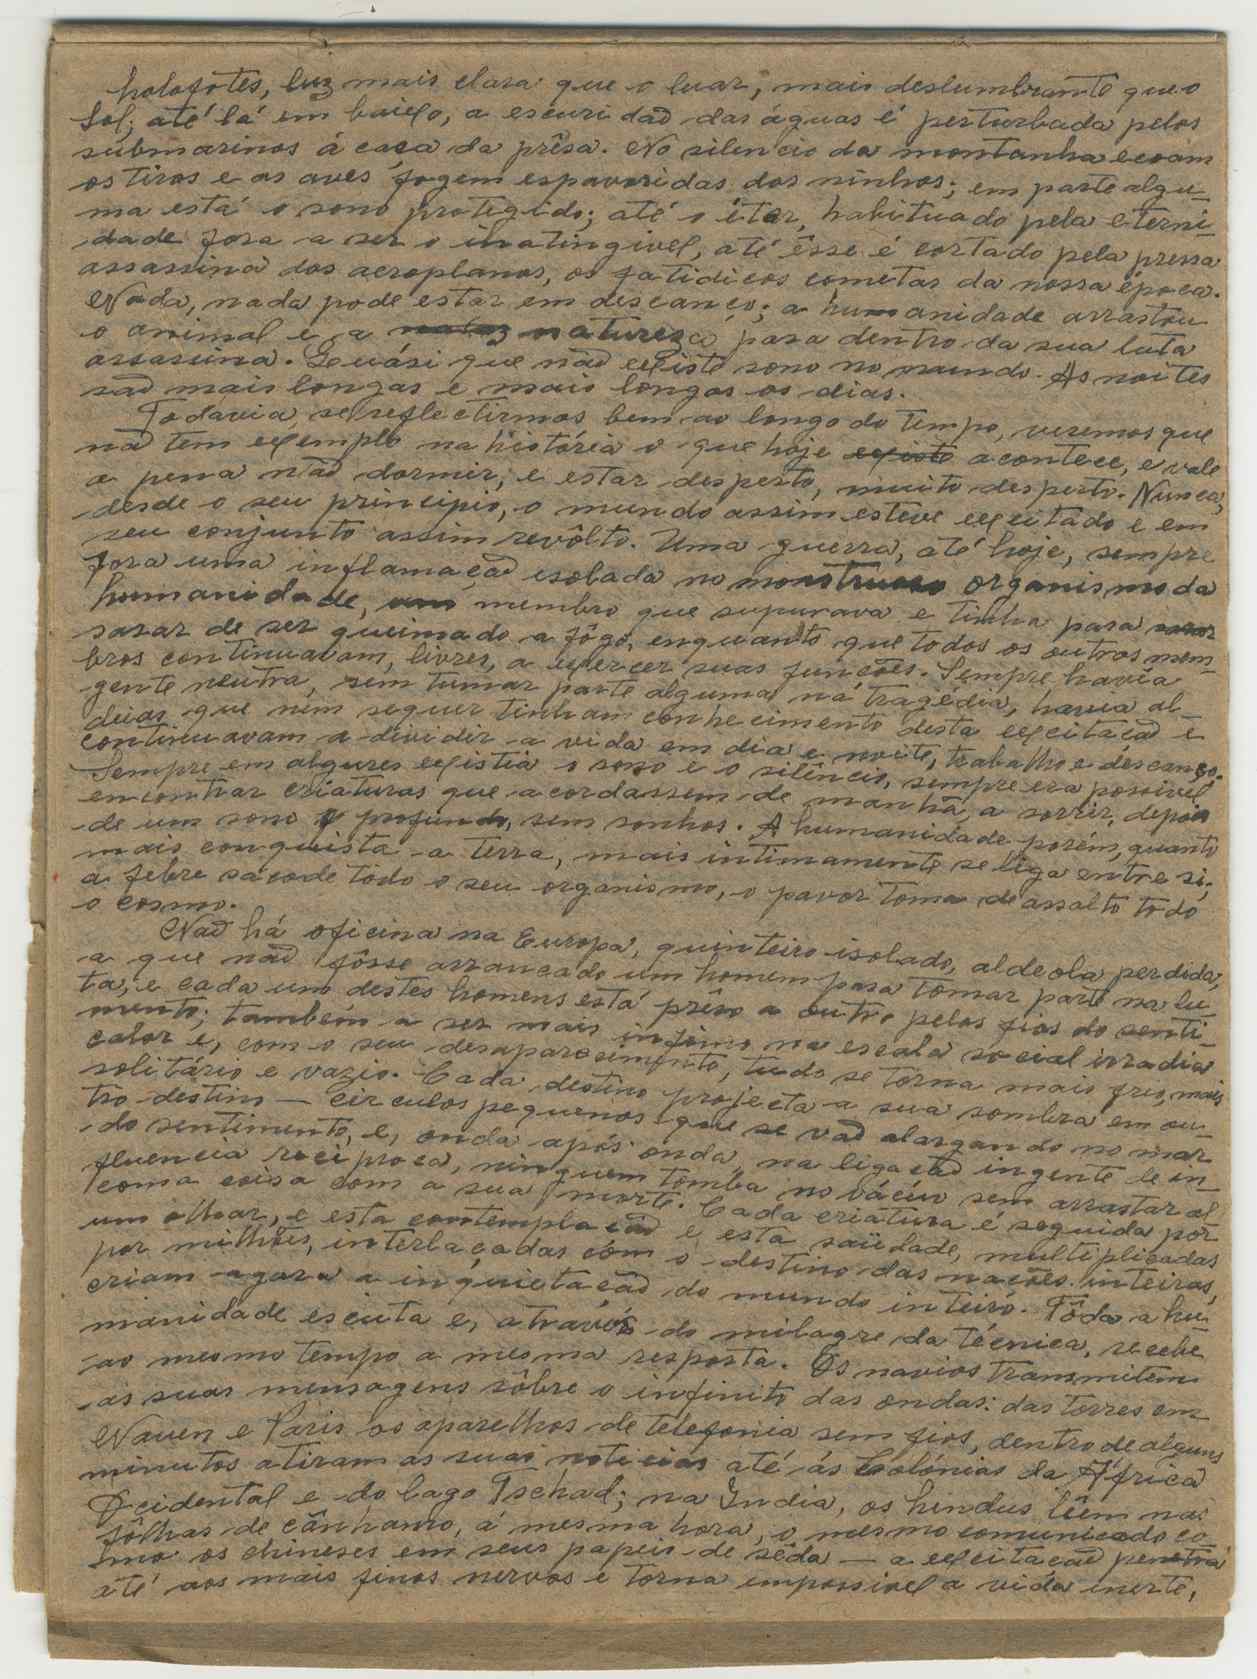 holofotes, luz mais clara que o luar, mais deslumbrante que o
Sol; até lá em baixo, a escuridaõ das águas é perturbada pelos
submarinos á caça da prêsa. No silencio da montanha ecoam
os tiros e as aves fogem espavoridas dos ninhos; em parte algu-
ma está o sono protegido; até o éter, habituado pela eterni-
dade fora a ser o inatingivel, até êsse é cortado pela pressa
assassina dos aeroplanos, os fatidicos cometas da nossa época.
Nada, nada pode estar em descanço; a humanidade arrastou
o animal e a naturesa para dentro da sua luta
assassina. Quási que naõ existe sono no mundo. As noites
saõ mais longas e mais longos os dias.
Todavia, se reflectirmos bem ao longo do tempo, veremos que
naõ tem exemplo na história o que hoje existe acontece, e vale
a pena naõ dormir, e estar desperto, muito desperto. Nunca,
desde o seu principio, o mundo assim esteve excitado e em
seu conjunto assim revôlto. Uma guerra, até hoje, sempre
fora uma inflamaçaõ isolada no monstruoso organismo da
humanidade, um membro que supurava e tinha para
sarar de ser queimado a fôgo, enquanto que todos os outros mem-
bros continuavam, livres, a exercer suas funções. Sempre havia
gente neutra, sem tomar parte alguma na tragédia, havia al-
deias que nem sequer tinham conhecimento desta excitaçaõ e
continuavam a dividir a vida em dia e noite, trabalho e descanço.
Sempre em algures existia o sono e o silêncio, sempre era possivel
encontrar criaturas que acordassem de manhã, a sorrir, depois
de um sono profundo, sem sonhos. A humanidade porém, quanto
mais conquista a terra, mais intimamente se liga entre si;
a febre sacode todo o seu organismo, o pavor toma de assalto todo
o cosmo.
Naõ há oficina na Europa, quinteiro isolado, aldeola perdida,
a que naõ fôsse arrancado um homem para tomar parte na lu-
ta, e cada um destes homens está prêso a outro pelos fios do senti-
mento; também o ser mais infimo na escala social irradia
calor e, com o seu desaparecimento, tudo se torna mais frio, mais
solitário e vazio. Cada destino projecta a sua sombra em ou-
tro destino — circulos pequenos que se vaõ alargando no mar
do sentimento, e, onda após onda, na ligaçaõ ingente e in-
fluencia reciproca, ninguem tomba no vácuo sem arrastar al-
coma coisa com a sua morte. Cada criatura é seguida por
um olhar, e esta contemplaçaõ e esta saüdade, multiplicadas
por milhões, interlaçadas com o destino das nações inteiras,
criam agora a inquietaçaõ do mundo inteiro. Tôda a hu-
manidade escuta e, através do milagre da técnica, recebe
ao mesmo tempo a mesma resposta. Os navios transmitem
as suas mensagens sôbre o infinito das ondas: das torres em
Nauen e Paris os aparelhos de telefonia sem fios, dentro de alguns
minutos atiram as suas noticias até ás Colónias da Africa
Ocidental e do lago Tschad; na India, os hindus lêem nas
fôlhas de cânhamo, á mesma hora, o mesmo comunicado co-
mo os chineses em seus papeis de sêda — a excitaçaõ penetra
até aos mais finos nervos e torna impossivel a vida inerte,